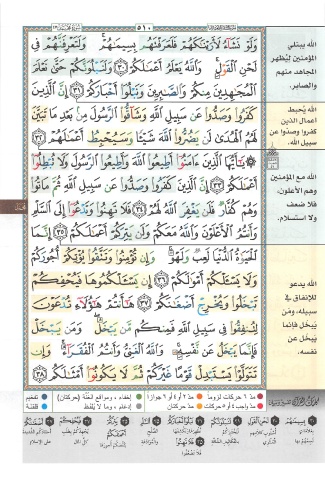 ٥١٠
وَلَوْ نَشَاءُ لَأَرَيْنَٰكَهُمْ فَلَعَرَفْتَهُم بِسِيمَٰهُمْ ۚ وَلَتَعْرِفَنَّهُمْ فِى
لَحْنِ ٱلْقَوْلِ ۚ وَٱللَّهُ يَعْلَمُ أَعْمَٰلَكُمْ ٣٠ وَلَنَبْلُوَنَّكُمْ حَتَّىٰ نَعْلَمَ
ٱلْمُجَٰهِدِينَ مِنكُمْ وَٱلصَّٰبِرِينَ وَنَبْلُوَا۟ أَخْبَارَكُمْ ٣١ إِنَّ ٱلَّذِينَ
كَفَرُوا۟ وَصَدُّوا۟ عَن سَبِيلِ ٱللَّهِ وَشَاقُّوا۟ ٱلرَّسُولَ مِنۢ بَعْدِ مَا تَبَيَّنَ
لَهُمُ ٱلْهُدَىٰ لَن يَضُرُّوا۟ ٱللَّهَ شَيْـًٔا وَسَيُحْبِطُ أَعْمَٰلَهُمْ ٣٢
يَٰٓأَيُّهَا ٱلَّذِينَ ءَامَنُوٓا۟ أَطِيعُوا۟ ٱللَّهَ وَأَطِيعُوا۟ ٱلرَّسُولَ وَلَا تُبْطِلُوٓا۟
أَعْمَٰلَكُمْ ٣٣ إِنَّ ٱلَّذِينَ كَفَرُوا۟ وَصَدُّوا۟ عَن سَبِيلِ ٱللَّهِ ثُمَّ مَاتُوا۟
وَهُمْ كُفَّارٌ فَلَن يَغْفِرَ ٱللَّهُ لَهُمْ ٣٤ فَلَا تَهِنُوا۟ وَتَدْعُوٓا۟ إِلَى ٱلسَّلْمِ
وَأَنتُمُ ٱلْأَعْلَوْنَ وَٱللَّهُ مَعَكُمْ وَلَن يَتِرَكُمْ أَعْمَٰلَكُمْ ٣٥ إِنَّمَا
ٱلْحَيَوٰةُ ٱلدُّنْيَا لَعِبٌ وَلَهْوٌ ۚ وَإِن تُؤْمِنُوا۟ وَتَتَّقُوا۟ يُؤْتِكُمْ أُجُورَكُمْ
وَلَا يَسْـَٔلْكُمْ أَمْوَٰلَكُمْ ٣٦ إِن يَسْـَٔلْكُمُوهَا فَيُحْفِكُمْ
تَبْخَلُوا۟ وَيُخْرِجْ أَضْغَٰنَكُمْ ٣٧ هَٰٓأَنتُمْ هَٰٓؤُلَآءِ تُدْعَوْنَ
لِتُنفِقُوا۟ فِى سَبِيلِ ٱللَّهِ فَمِنكُم مَّن يَبْخَلُ ۖ وَمَن يَبْخَلْ
فَإِنَّمَا يَبْخَلُ عَن نَّفْسِهِۦ ۚ وَٱللَّهُ ٱلْغَنِىُّ وَأَنتُمُ ٱلْفُقَرَآءُ ۚ وَإِن
تَتَوَلَّوْا۟ يَسْتَبْدِلْ قَوْمًا غَيْرَكُمْ ثُمَّ لَا يَكُونُوٓا۟ أَمْثَٰلَكُم ٣٨
الله يبتلي
المؤمنين ليُظهر
المجاهد منهم
والصابر.
الله يُحبط
أعمال الذين
كفروا وصدوا عن
سبيل الله.
الله مع المؤمنين
وهم الأعلون،
فلا ضعف
ولا استسلام.
الله يدعو
للإنفاق في
سبيله، ومَن
يبخل فإنما
يبخل عن
نفسه.
مدّ ٦ حركات لزوماً
مدّ ٢ أو ٤ أو ٦ جوازاً
إخفاء، ومواقع الغُنَّة (حركتان)
تفخيم
مدّ حركتان
إدغام، وما لا يُلفَظ
قلقلة